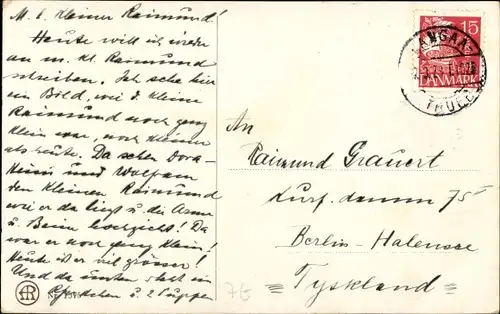 M. l. kleiner Raimund!
Heute will ich wieder
an m. kl. Raimund
schreiben. Ich sehe hier
ein Bild, wie d. kleine
Raimund noch ganz
klein war, noch kleiner
als heute. Da sehen Dora-
und Wolfram
den kleinen Raimund
wie er da liegt u. die Arme
u. Beine hochzieht! Da
war er noch ganz klein!
Heute ist er viel grösser!
Und da unten steht ein
Pferdchen u. 2 Puppen
An
Raimund Grauert
Kurf. damm 75
Berlin-Halensee
Tyskland
15
DANMARK